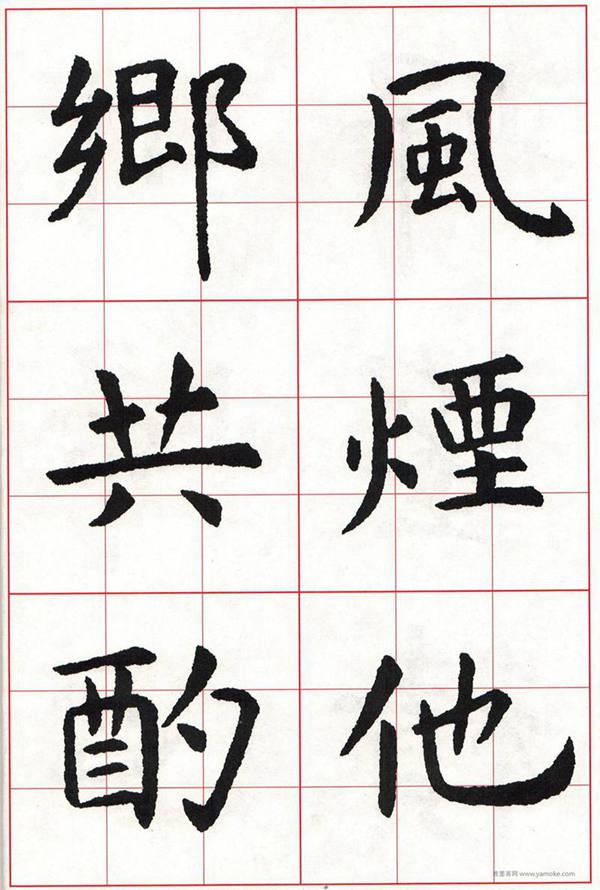 風煙他
鄉共酌
www.yamoke.com